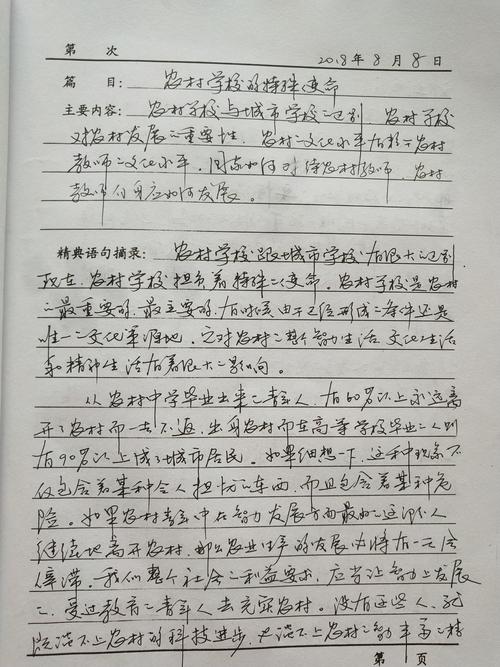 第 次 2018年8月8日
篇 目：农村学校的特殊使命
主要内容：农村学校与城市学校二区别，农村学校
对农村发展二重要性，农村二文化水平有赖于农村
教师二文化水平，国家如何对待农村教师，农村
教师自身应如何发展。
精典语句摘录：农村学校跟城市学校有很大二区别
现在，农村学校担负着特殊二使命。农村学校是农村
二最重要的、最主要的，有时候由于已经形成二条件还是
唯一二文化策源地，它对农村二整个智力生活、文化生活
和精神生活有着很大二影响。
从农村中学毕业出来二青年人，有60%以上永远离
开了农村而一去不返，出身农村而在高等学校毕业二人则
有90%以上成了城市居民。如果细想一下，这种现象不
仅包含着某种令人担忧二东西，而且包含着某种危
险。如果农村青年中在智力发展方面最好二这部分人
继续地离开农村，那么农业生产的发展必将有一天会
停滞。我们整个社会二利益要求，应当让智力上发展
二、受过教育二青年人去充实农村。没有这些人，就
既谈不上农村的科技进步，也谈不上农村二智力丰富二精
第 页